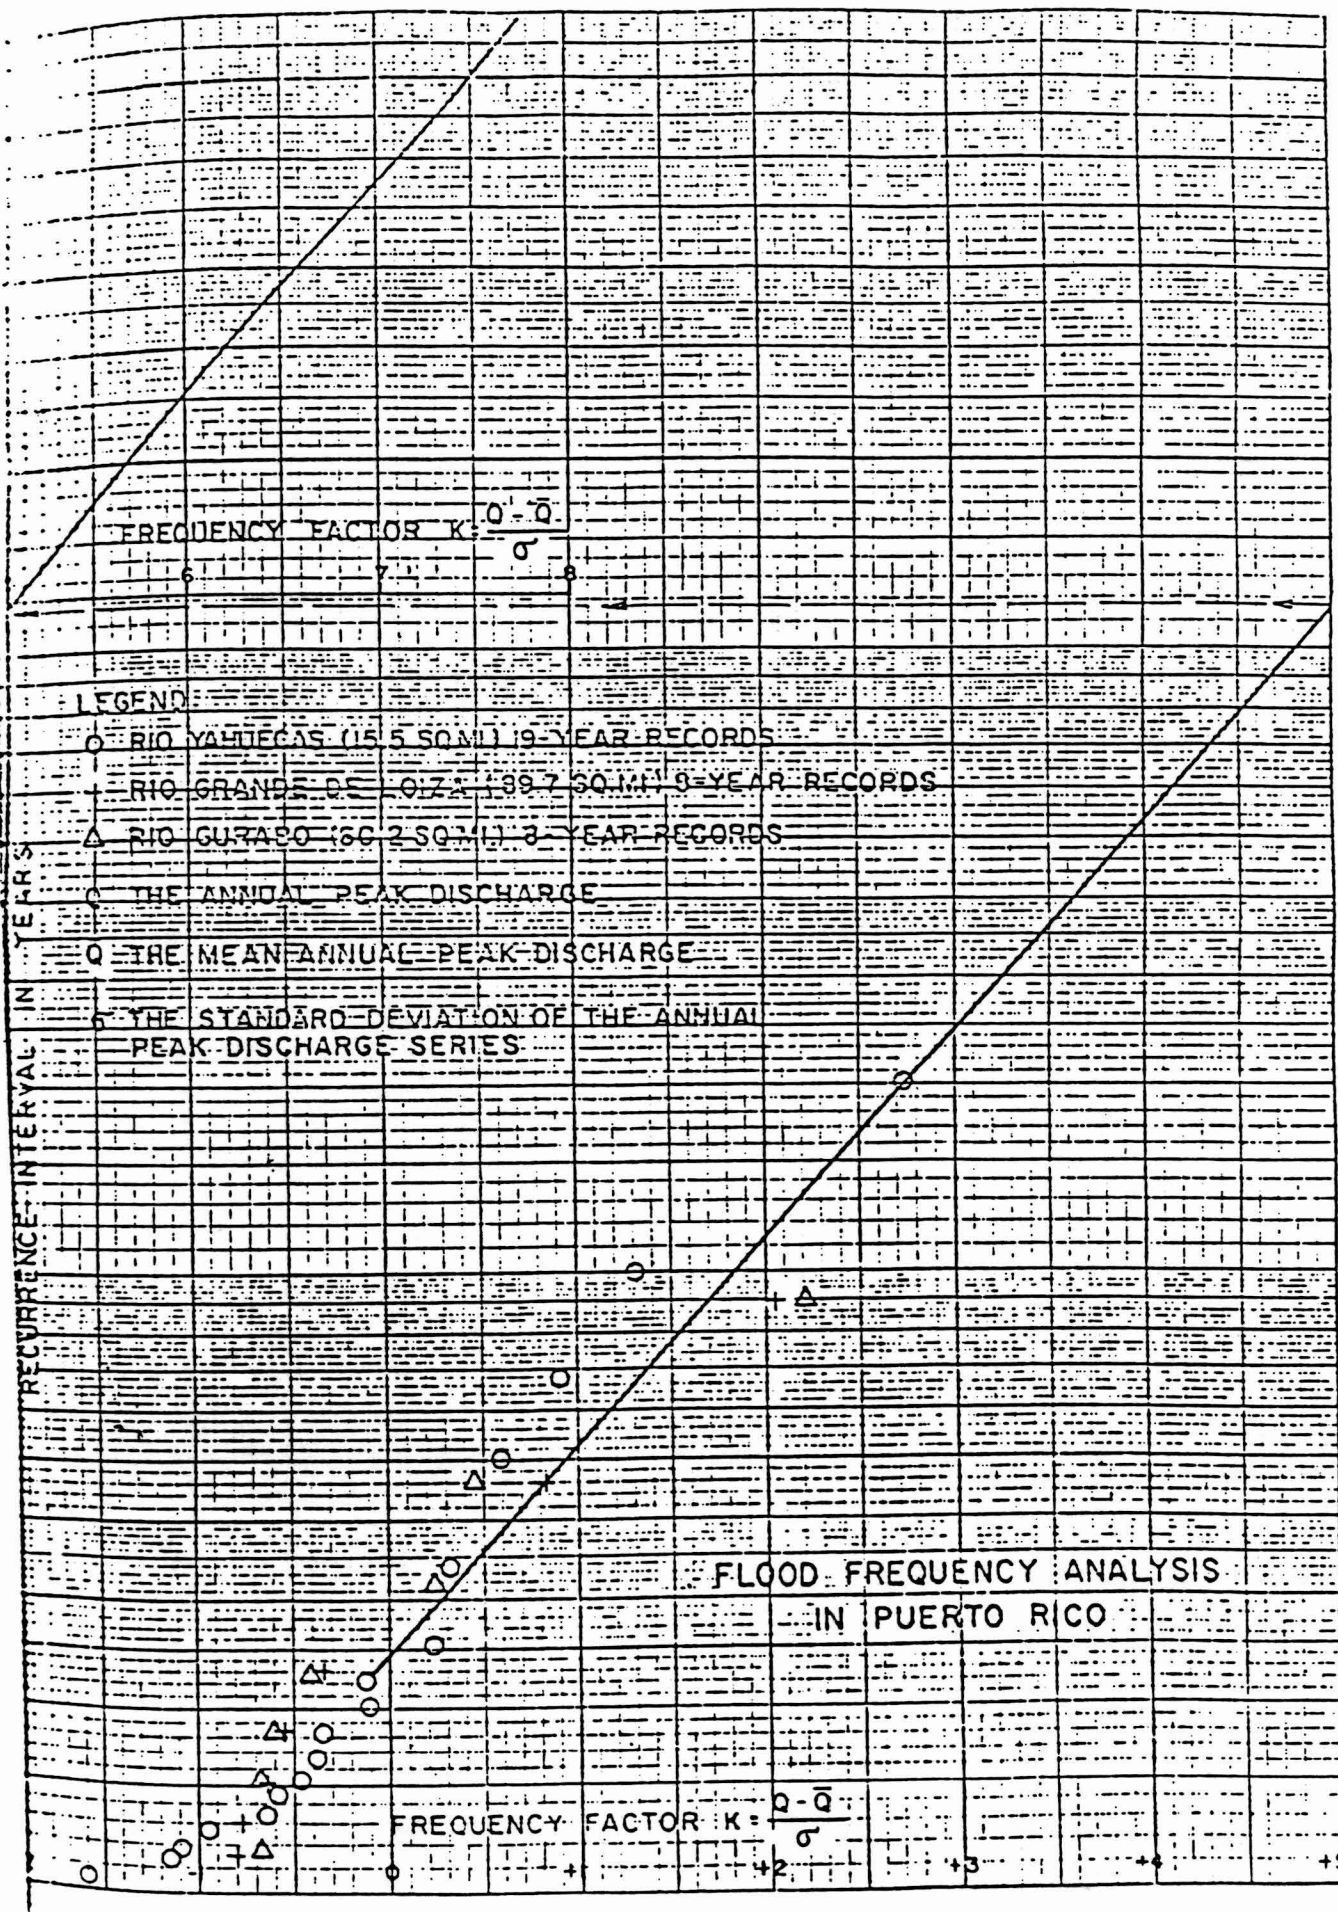 FREQUENCY FACTOR K = Q - Q̄ / σ
6 7 8
LEGEND
O RIO YAHUECAS (15.5 SQ.MI.) 19-YEAR RECORDS
+ RIO GRANDE DE LOIZA (89.7 SQ.MI.) 8-YEAR RECORDS
△ RIO GURABO (60.2 SQ.MI.) 8-YEAR RECORDS
Q THE ANNUAL PEAK DISCHARGE
Q̄ THE MEAN ANNUAL PEAK DISCHARGE
σ THE STANDARD DEVIATION OF THE ANNUAL
PEAK DISCHARGE SERIES
RECURRENCE INTERVAL IN YEARS
FLOOD FREQUENCY ANALYSIS
IN PUERTO RICO
FREQUENCY FACTOR K = Q - Q̄ / σ
0 +1 +2 +3 +4